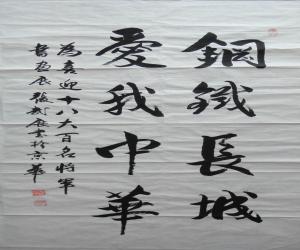 鋼鐵長城
愛我中華
為喜迎十八大百名將軍
書畫展張武康書於京華